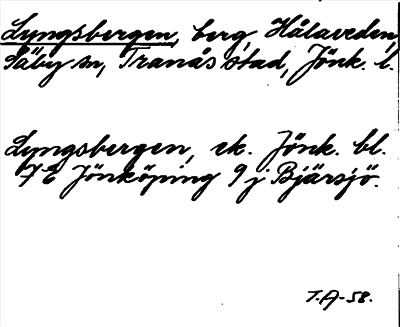 Lyngsbergen, berg, Hålaveden,
Säby sn, Tranås stad, Jönk. l.
Lyngsbergen, ek. Jönk. bl.
7E Jönköping 9 j Bjärsjö.
T.A-58.